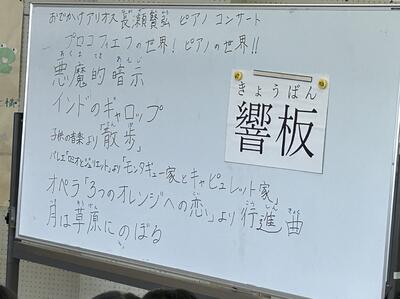 おでかけアリオス 長瀬賢弘 ピアノ コンサート
プロコフィエフの世界！ピアノの世界！！
あくま てき あんじ
悪魔的暗示
インドのギャロップ
子供の音楽より「散歩」
バレエ「ロメオとジュリエット」より「モンタギュー家とキャピュレット家」
オペラ「3つのオレンジへの恋」より行進曲
月は草原にのぼる
きょうばん
響板